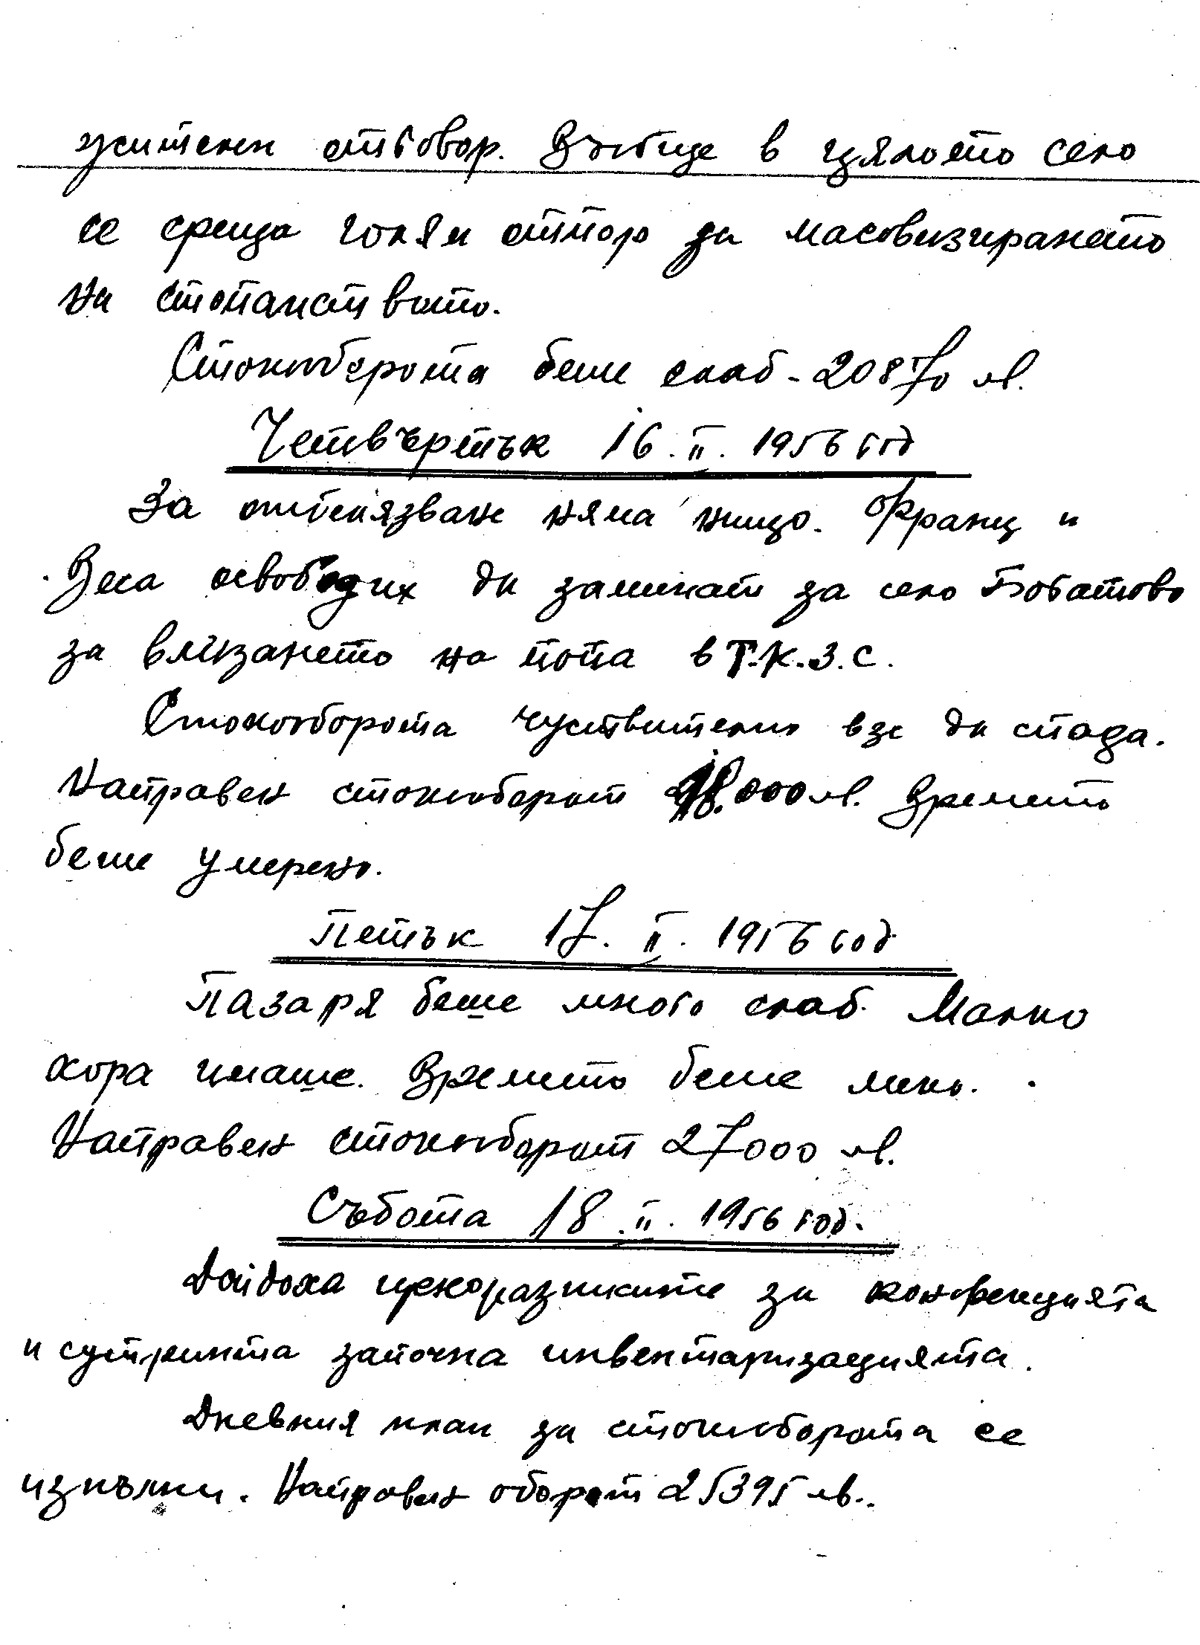 жителен отговор. Въобще в цялото село
се среща голям отпор за масовизирането
на стопанството.
Стокооборота беше слаб - 20870 лв.
Четвъртък 16. II. 1956 год
За отбелязване няма нищо. Франц и
Веса освободих да заминат за село Богатово
за влизането на попа в Т.К.З.С.
Стокооборота чуствително взе да спада.
Направен стокооборот 18.000 лв. Времето
беше умерено.
Петък 17. II. 1956 год
Пазаря беше много слаб. Малко
хора имаше. Времето беше меко.
Направен стокооборот 27000 лв.
Събота 18. II. 1956 год.
Дойдоха ценоразписите за конфекцията
и сутринта започна инвентаризацията.
Дневния план за стокооборота се
изпълни. Направен оборот 25395 лв..